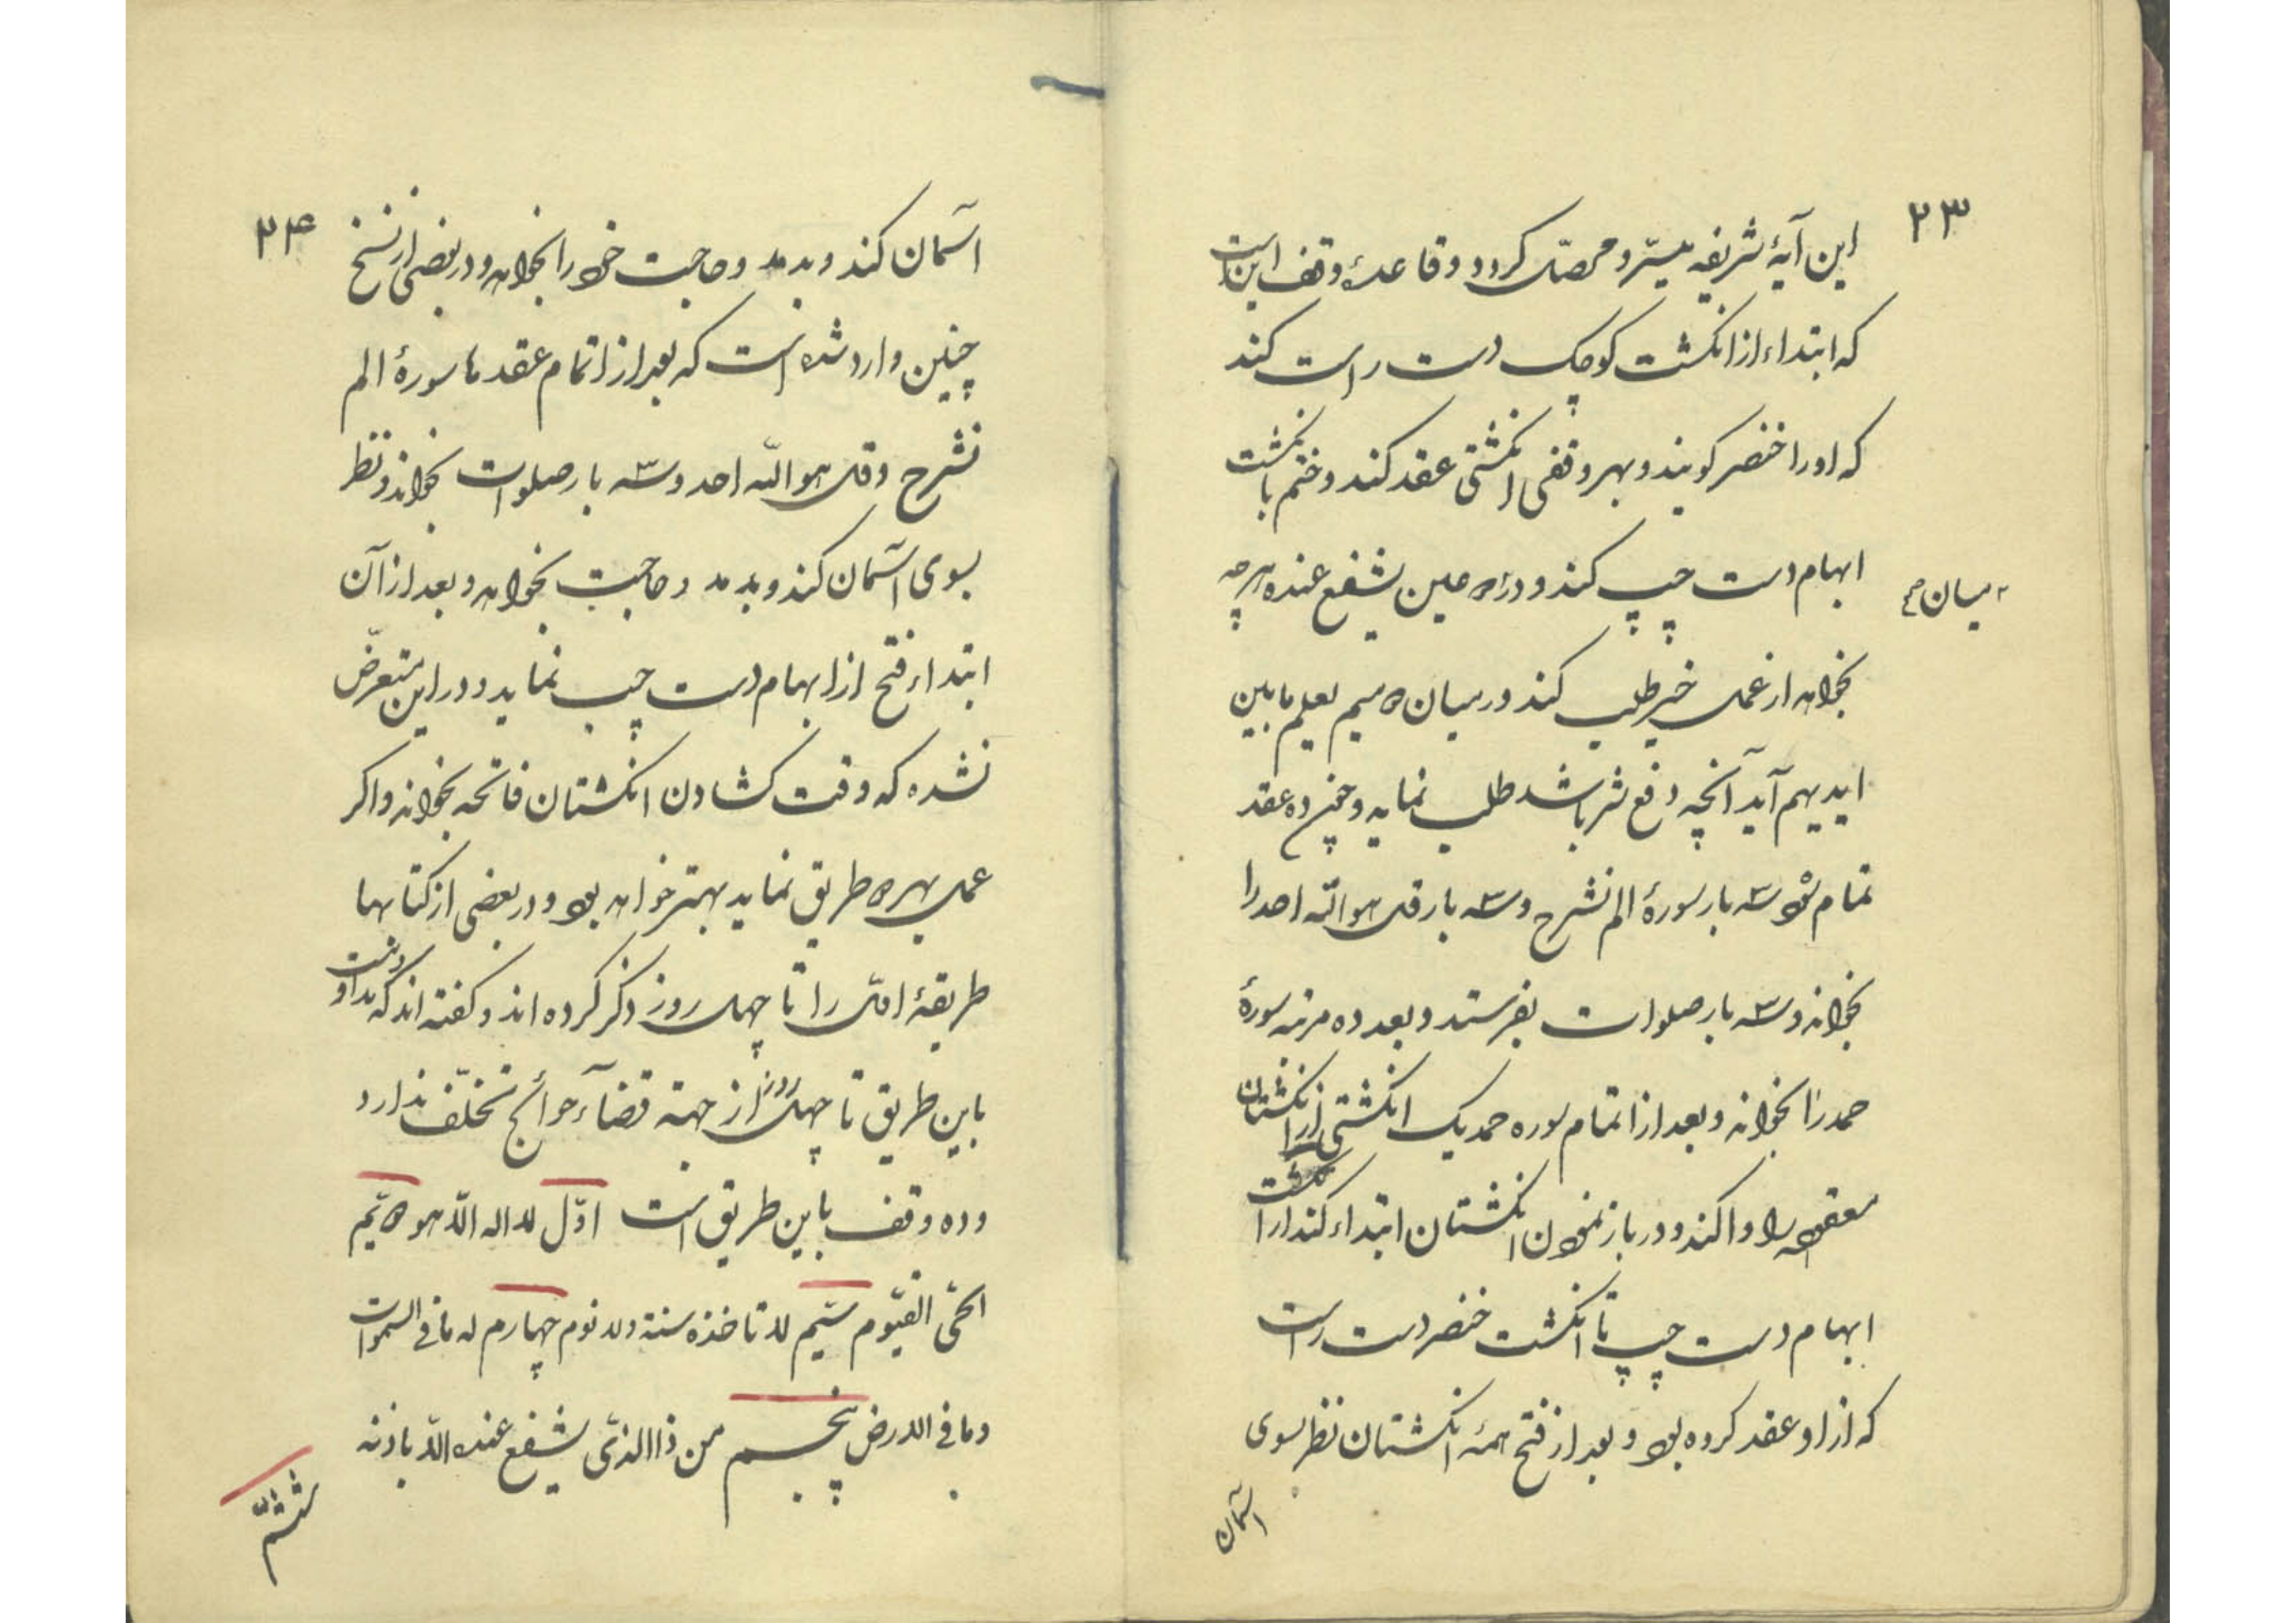 ۲۳
این آیهٔ شریفه میسّر و محصّل کردد و قاعدهٔ وقف این است
که ابتداء از انکشت کوچک دست راست کند
که او را خنصر کویند و بهر وقفی انکشتی عقد کند و ختم بانکشت
ابهام دست چپ کند و در میان عین یشفع عنده هرچه
میان
بخواهد از عمل خیر طلب کند و در میان دو میم یعلم مابین
ایدیهم آید آنچه دفع شر باشد طلب نماید و چون ده عقد
تمام شود سه بار سورهٔ الم نشرح و سه بار قل هو اللّه احد را
بخواند و سه بار صلوات بفرستد و بعد ده مرتبه سورهٔ
حمد را بخواند و بعد از اتمام سوره حمد یک انکشتی از انکشتان
معقوده را وا کند و در باز نمودن انکشتان ابتداء کند از انکشت
ابهام دست چپ تا انکشت خنصر دست راست
که از او عقد کرده بود و بعد از فتح همهٔ انکشتان نظر بسوی
آسمان
۲۴
آسمان کند و بدمد و حاجت خود را بخواهد و در بعضی از نسخ
چنین وارد شده است که بعد از اتمام عقدها سورهٔ الم
نشرح و قل هو اللّه احد و سه بار صلوات بخواند و نظر
بسوی آسمان کند و بدمد و حاجت بخواهد و بعد از آن
ابتداء فتح از ابهام دست چپ نماید و در این متعرّض
نشده که وقت کشادن انکشتان فاتحه بخواند و اکر
عمل بهر دو طریق نماید بهتر خواهد بود و در بعضی از کتابها
طریقهٔ اوّل را تا چهل روز ذکر کرده اند و کفته اند که مداومت
باین طریق تا چهل روز از جهة قضآء حوائج تخلّف ندارد
و ده وقف باین طریق است اوّل لا اله الّا هو دویّم
الحیّ القیّوم سیّم لا تاخذه سنة ولا نوم چهارم له ما فی السموات
وما فی الارض پنجم من ذا الذی یشفع عنده الّا باذنه
ششم